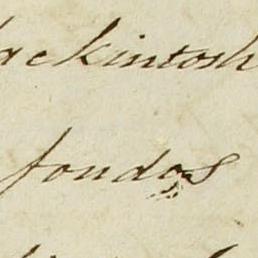 ackintosh
fondos